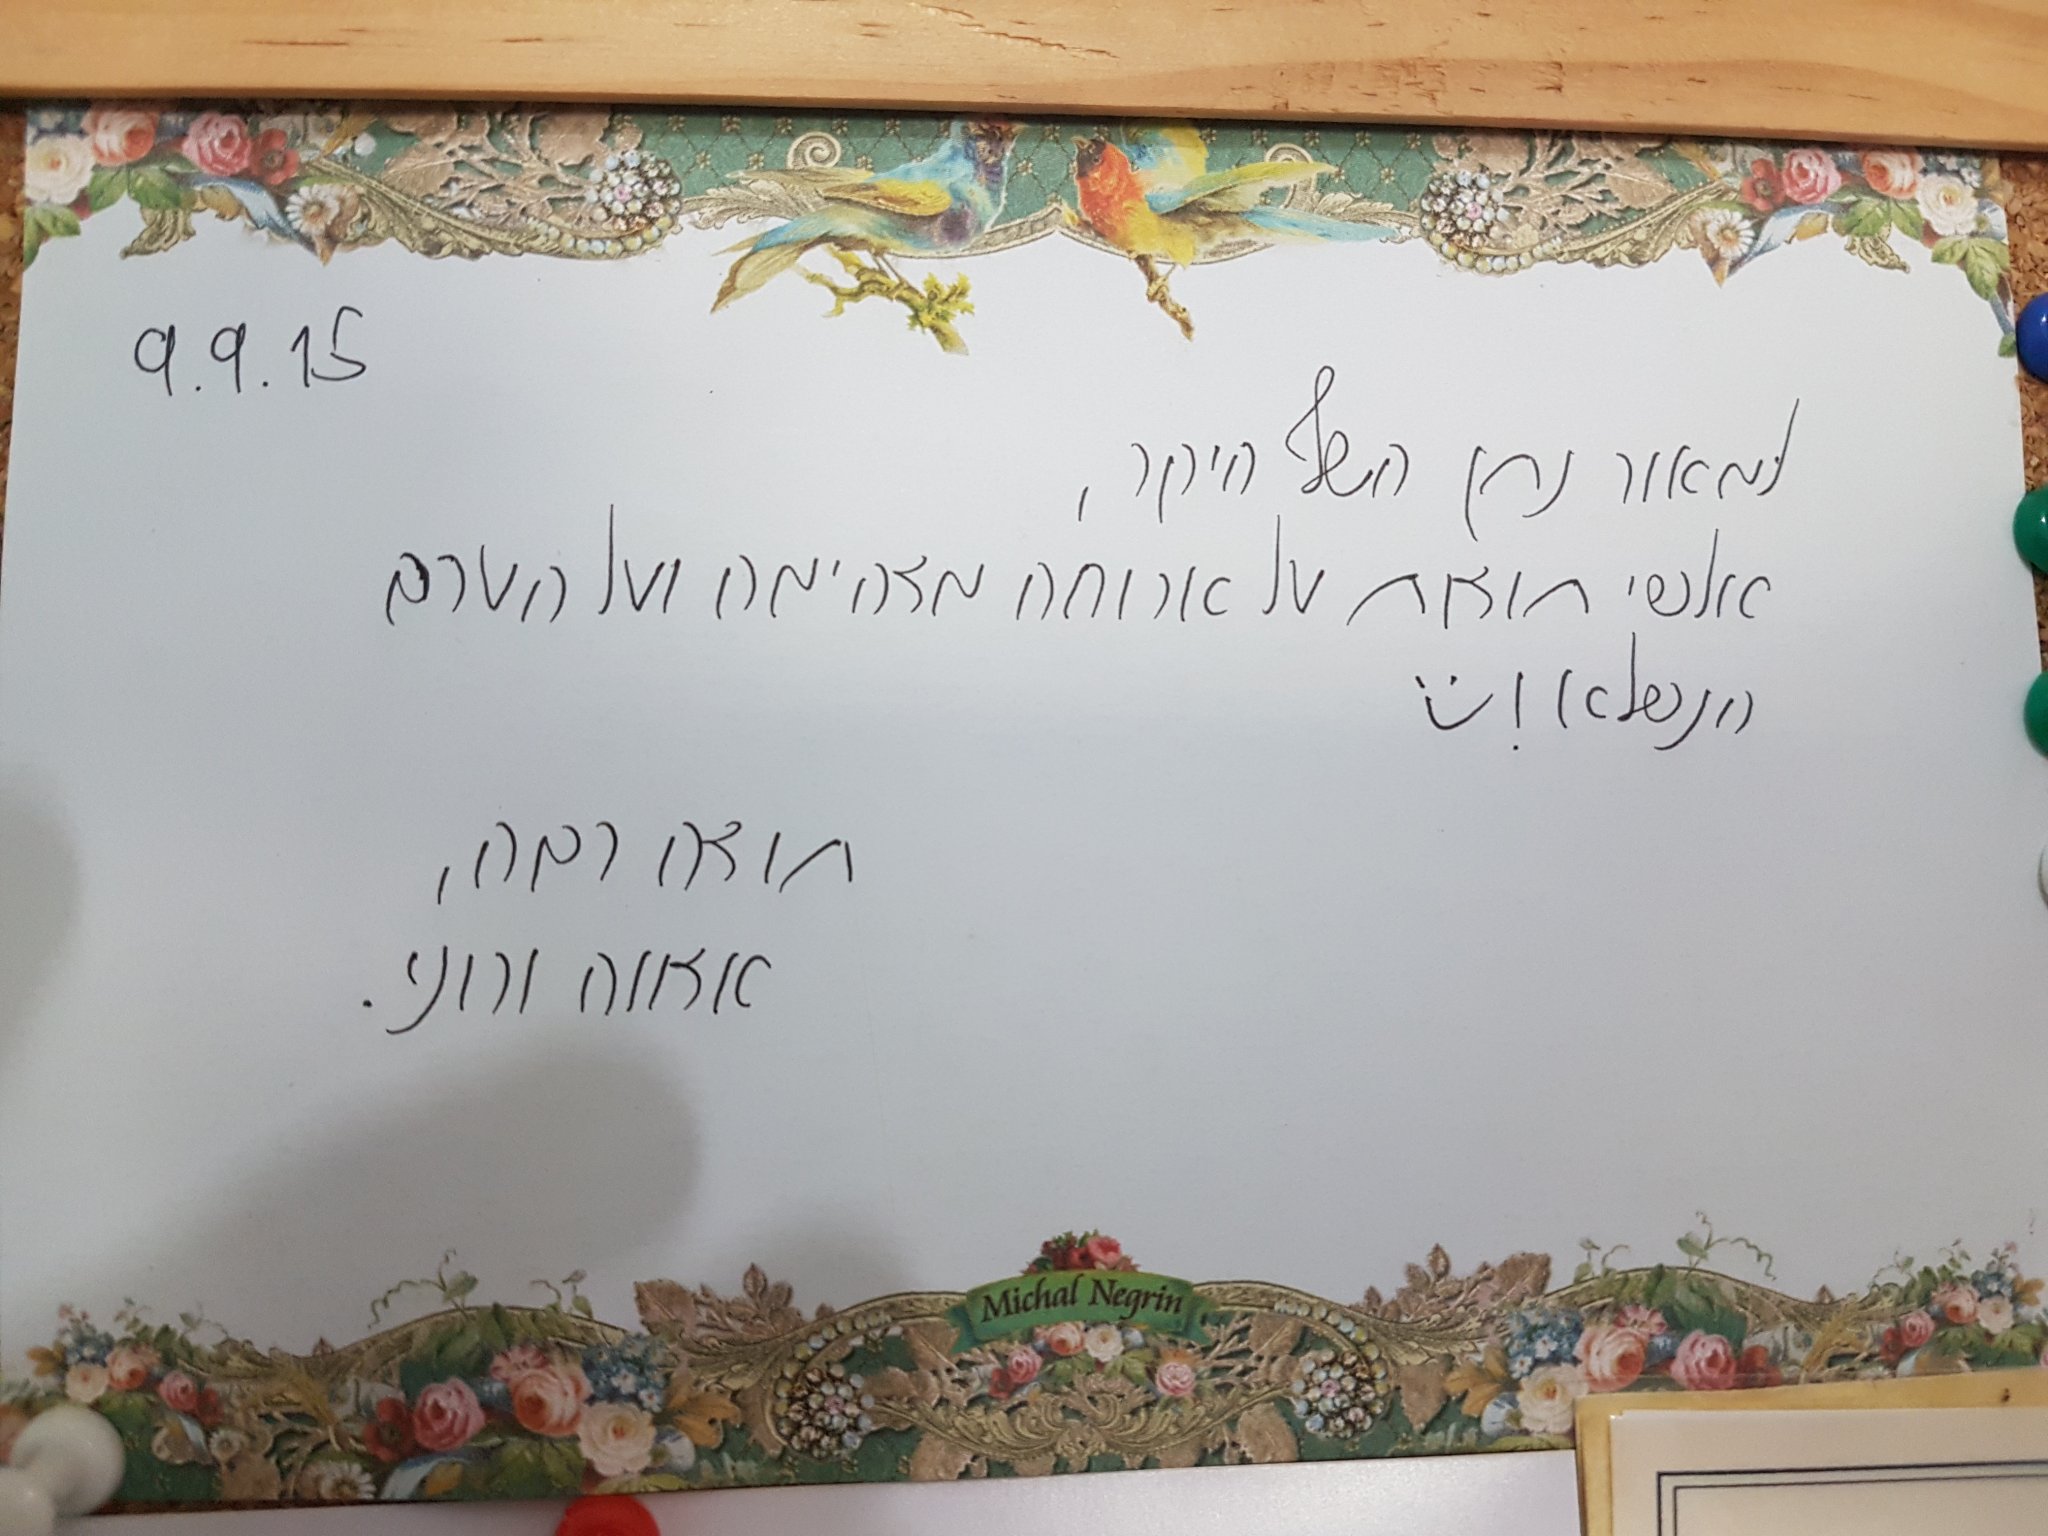 9.9.15
למאור נתן השף היקר,
אלפי תודות על ארוחה מדהימה ועל הערב
הנפלא!
תודה רבה,
אדווה ורוני.
Michal Negrin